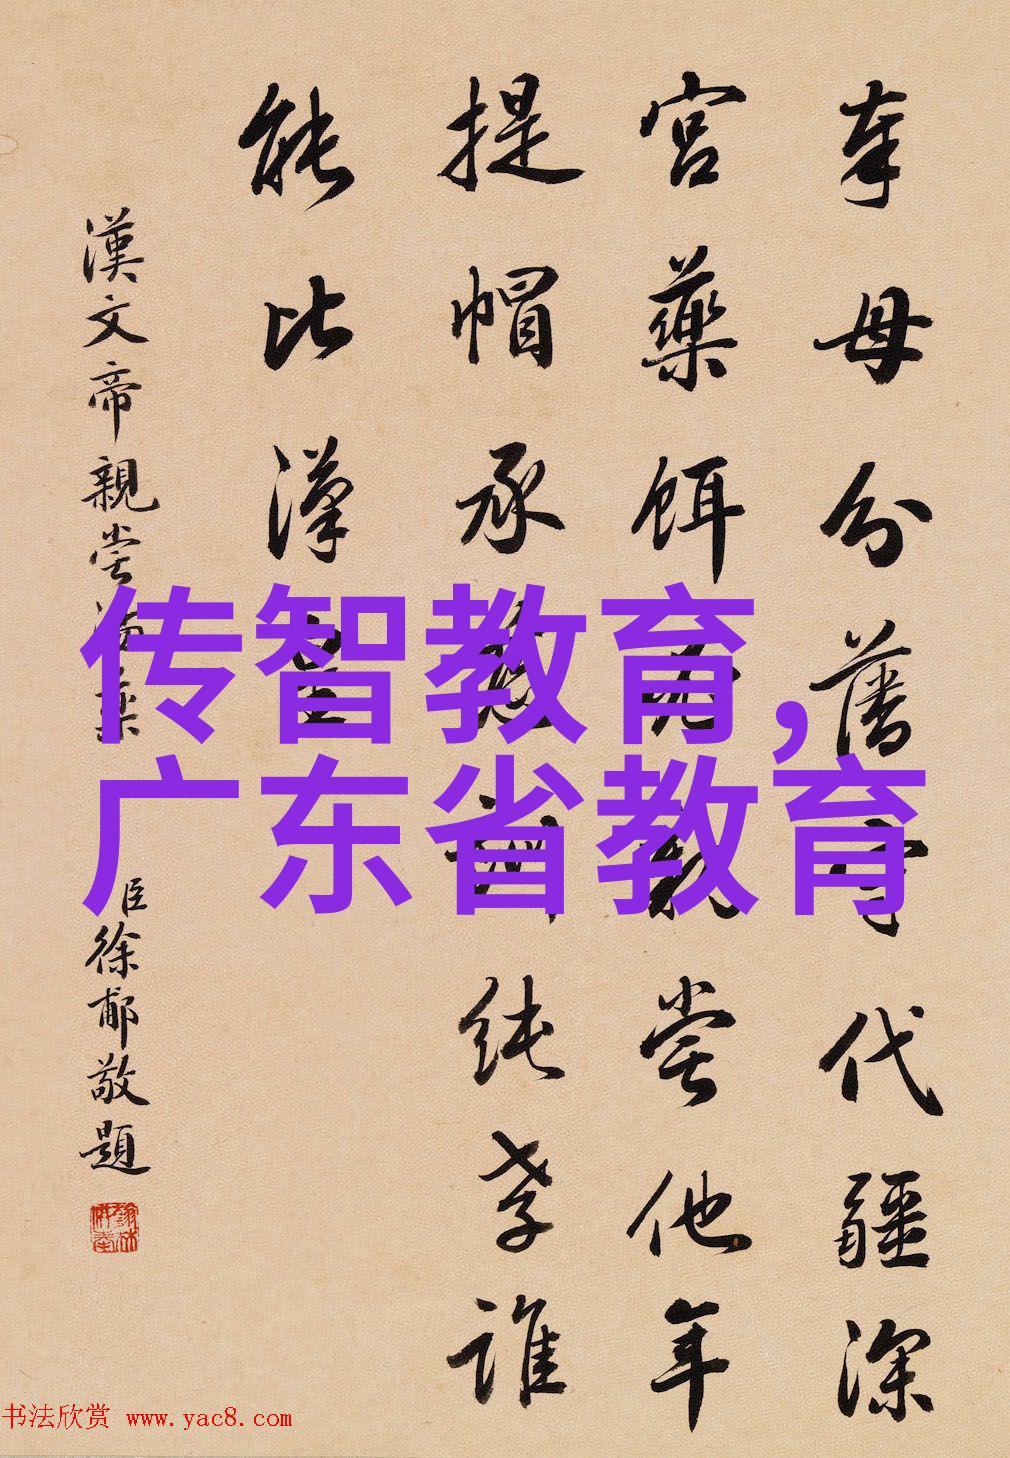 奉母分藩守代疆深
宮藥餌親嘗他年
提帽承慈訓純孝誰
能比漢
漢文帝親嘗湯藥
臣徐郙敬題
传智教育,
广东省教育
书法欣赏 www.yac8.com